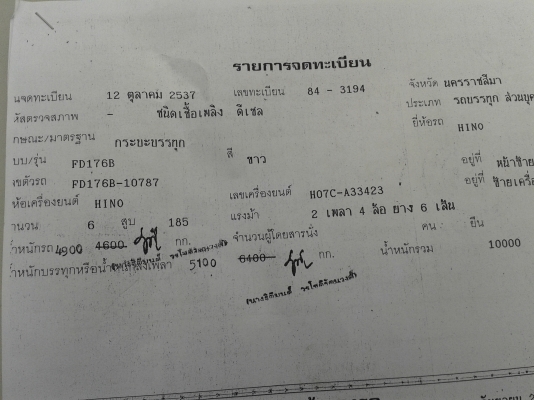 รายการจดทะเบียน
นจดทะเบียน 12 ตุลาคม 2537 เลขทะเบียน 84 - 3194 จังหวัด นครราชสีมา
หัสตรวจสภาพ - ชนิดเชื้อเพลิง ดีเซล ประเภท รถบรรทุก ส่วนบุค
กษณะ/มาตรฐาน กระบะบรรทุก ยี่ห้อรถ HINO
บบ/รุ่น FD176B สี ขาว อยู่ที่ หน้าซ้าย
ขตัวรถ FD176B-10787 เลขเครื่องยนต์ H07C-A33423 อยู่ที่ ซ้ายเครื่
ห้อเครื่องยนต์ HINO
านวน 6 สูบ 185 แรงม้า 2 เพลา 4 ล้อ ยาง 6 เส้น
ำหนักรถ 4900 4600 กก. จำนวนผู้โดยสารนั่ง คน ยืน
ำหนักบรรทุกหรือน้ำหนักลงเพลา 5100 6400 กก. น้ำหนักรวม 10000